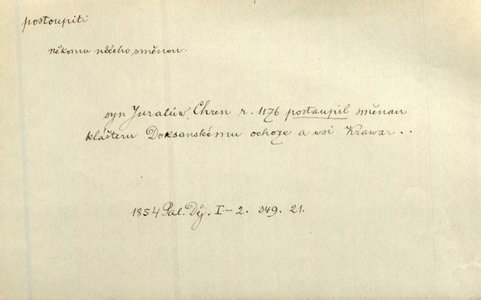 postoupiti
někomu něčeho směnou.
syn Juratův Chren r. 1176 postaupil směnau
klášteru Doksanskému ochoze a wsi Krawar..
1854 Pal. Děj. I-2. 349. 21.